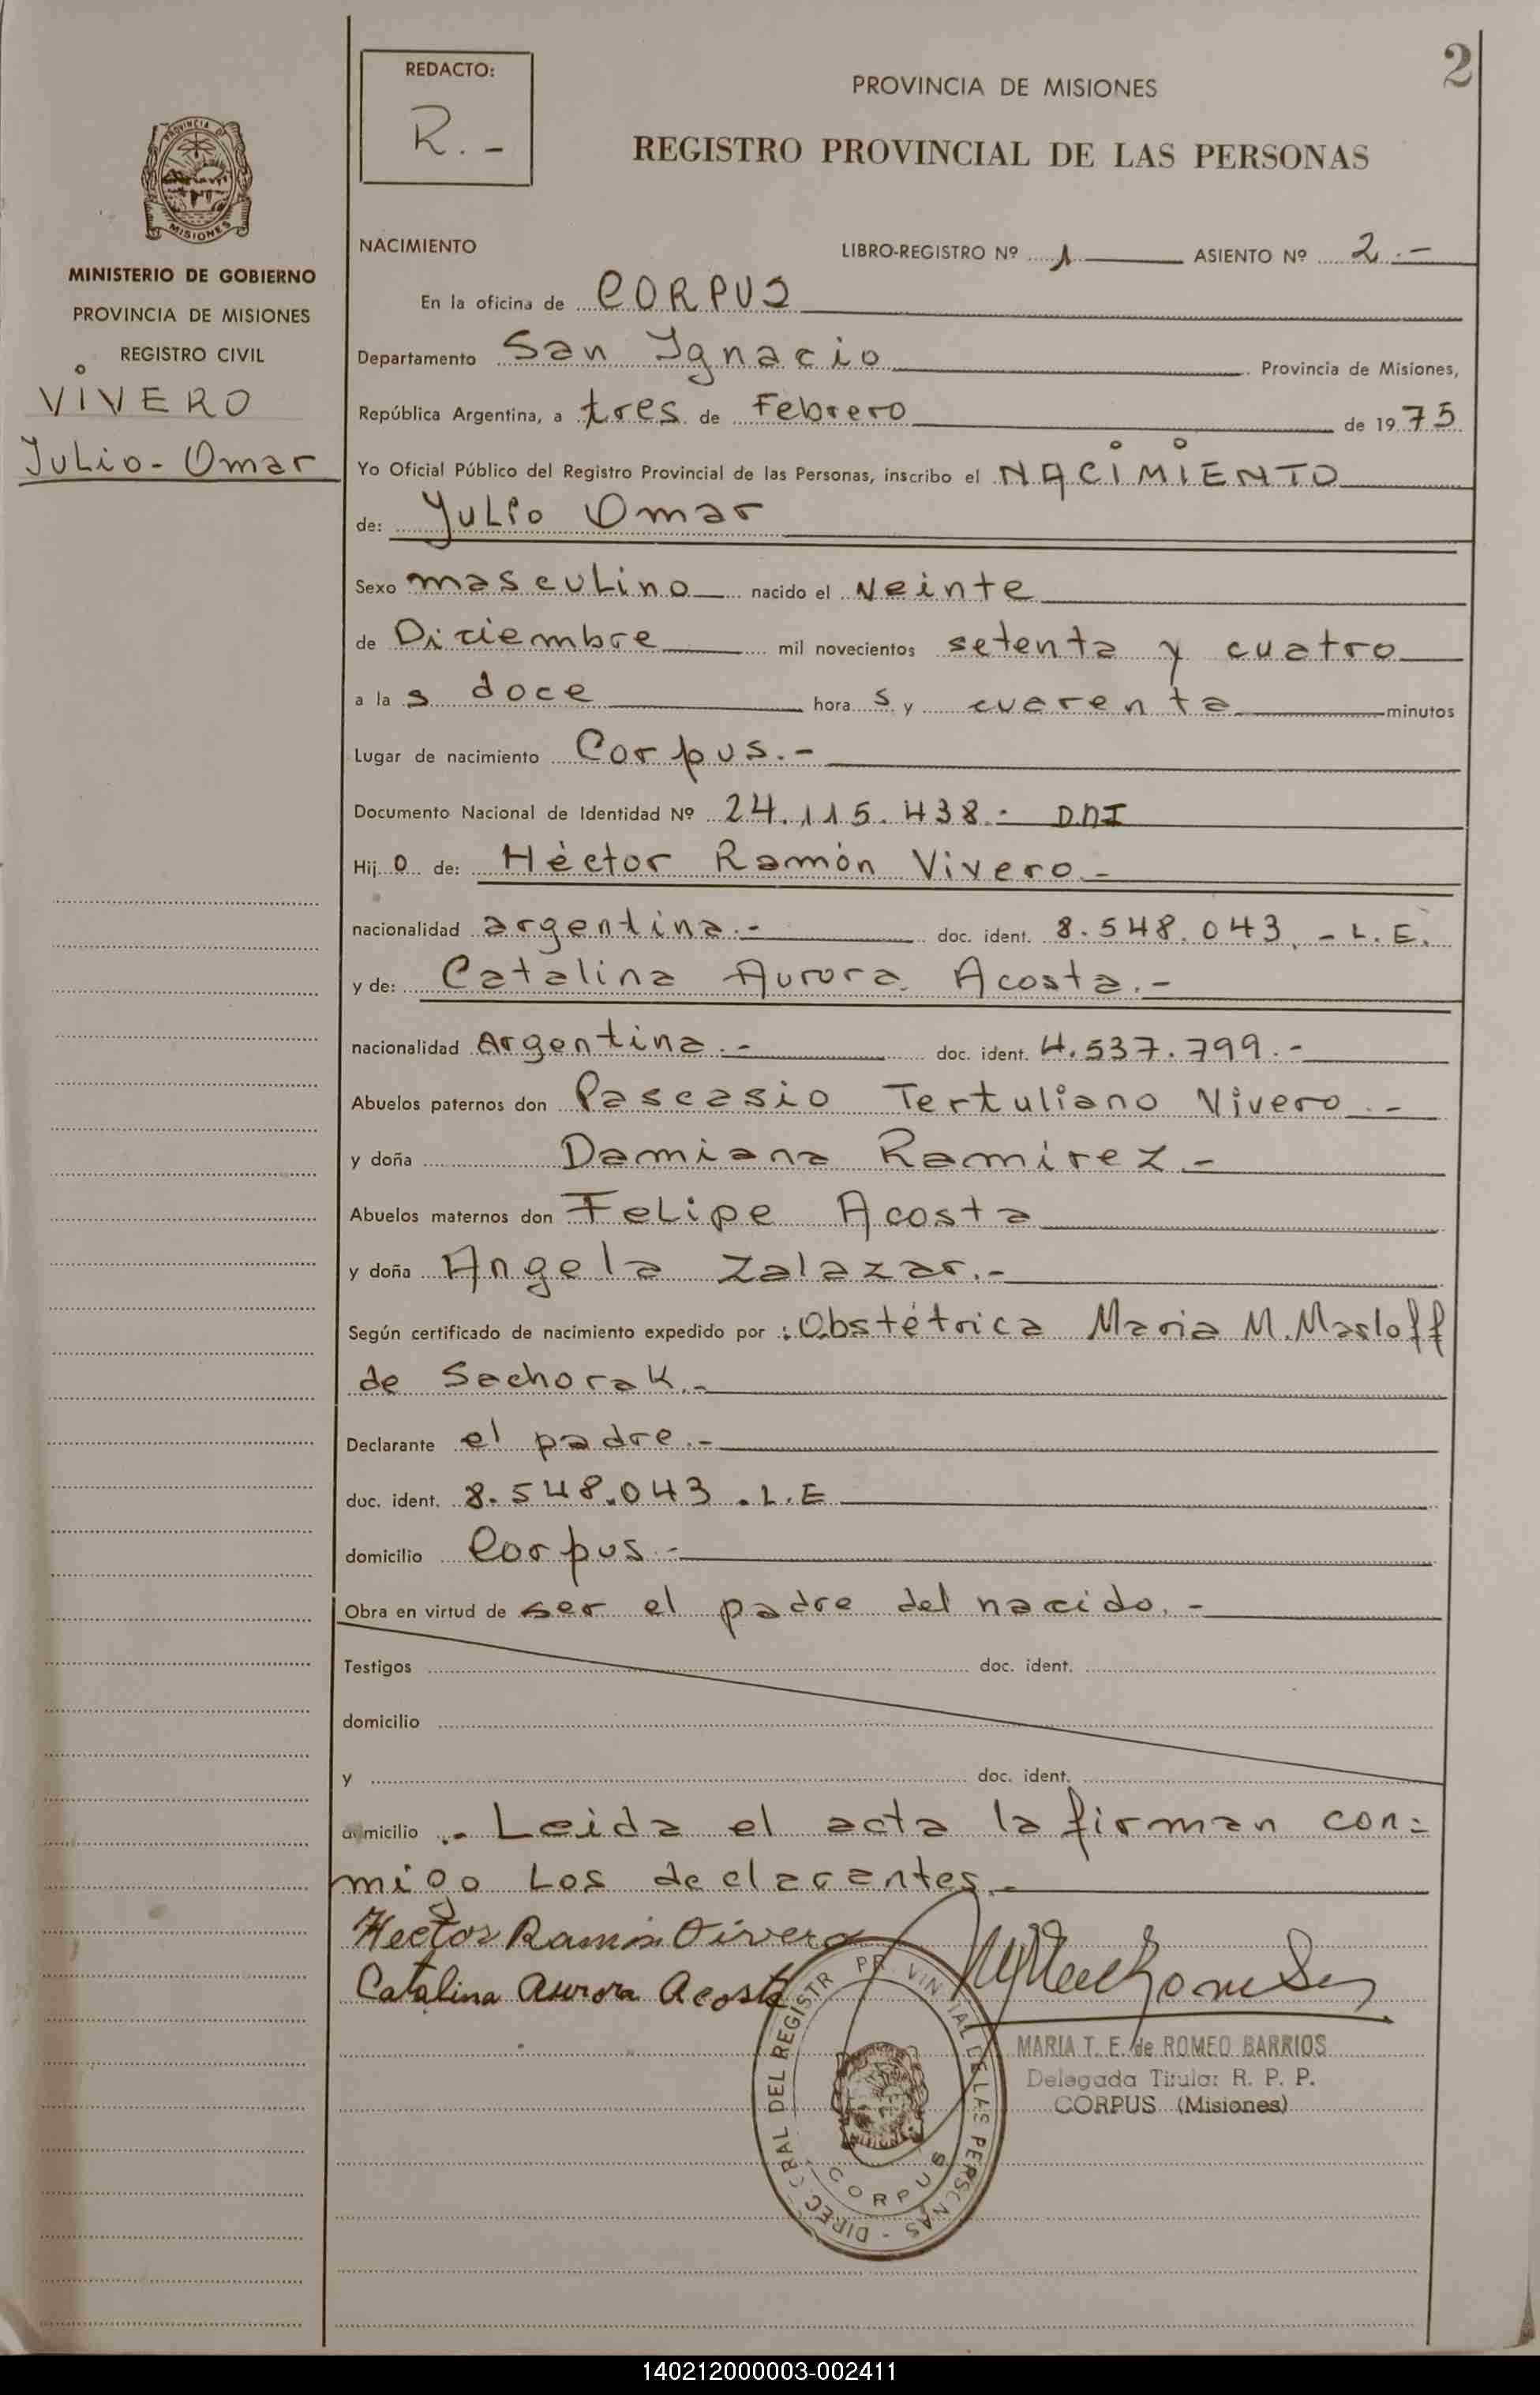 2
REDACTO:
R.-
PROVINCIA DE MISIONES
REGISTRO PROVINCIAL DE LAS PERSONAS
PROVINCIA DE
MISIONES
MINISTERIO DE GOBIERNO
PROVINCIA DE MISIONES
REGISTRO CIVIL
VIVERO
Julio - Omar
NACIMIENTO
LIBRO-REGISTRO Nº 1 ASIENTO Nº 2.-
En la oficina de CORPUS
Departamento San Ygnacio Provincia de Misiones,
República Argentina, a tres de Febrero de 1975
Yo Oficial Público del Registro Provincial de las Personas, inscribo el NACIMIENTO
de: Yulio Omar
Sexo masculino nacido el Veinte
de Diciembre mil novecientos setenta y cuatro
a las doce horas y cuarenta minutos
Lugar de nacimiento Corpus.-
Documento Nacional de Identidad Nº 24.115.438.- DNI
Hijo de: Héctor Ramón Vivero.-
nacionalidad argentina.- doc. ident. 8.548.043.- L.E.
y de: Catalina Aurora Acosta.-
nacionalidad Argentina.- doc. ident. 4.537.799.-
Abuelos paternos don Pascasio Tertuliano Vivero.-
y doña Damiana Ramirez.-
Abuelos maternos don Felipe Acosta
y doña Angela Zalazar.-
Según certificado de nacimiento expedido por : Obstétrica Maria M. Masloff
de Sachorak.-
Declarante el padre.-
doc. ident. 8.548.043.L.E
domicilio Corpus.-
Obra en virtud de ser el padre del nacido.-
Testigos doc. ident.
domicilio
y doc. ident.
domicilio .- Leida el acta la firman con=
migo los declarantes.-
Hector Ramon Vivero
Catalina Aurora Acosta
MARIA T. E. de ROMEO BARRIOS
Delegada Titular R. P. P.
CORPUS (Misiones)
DIREC RAL DEL REGISTR PR VIN IAL DE LAS PERSONAS -
CORPUS
140212000003-002411